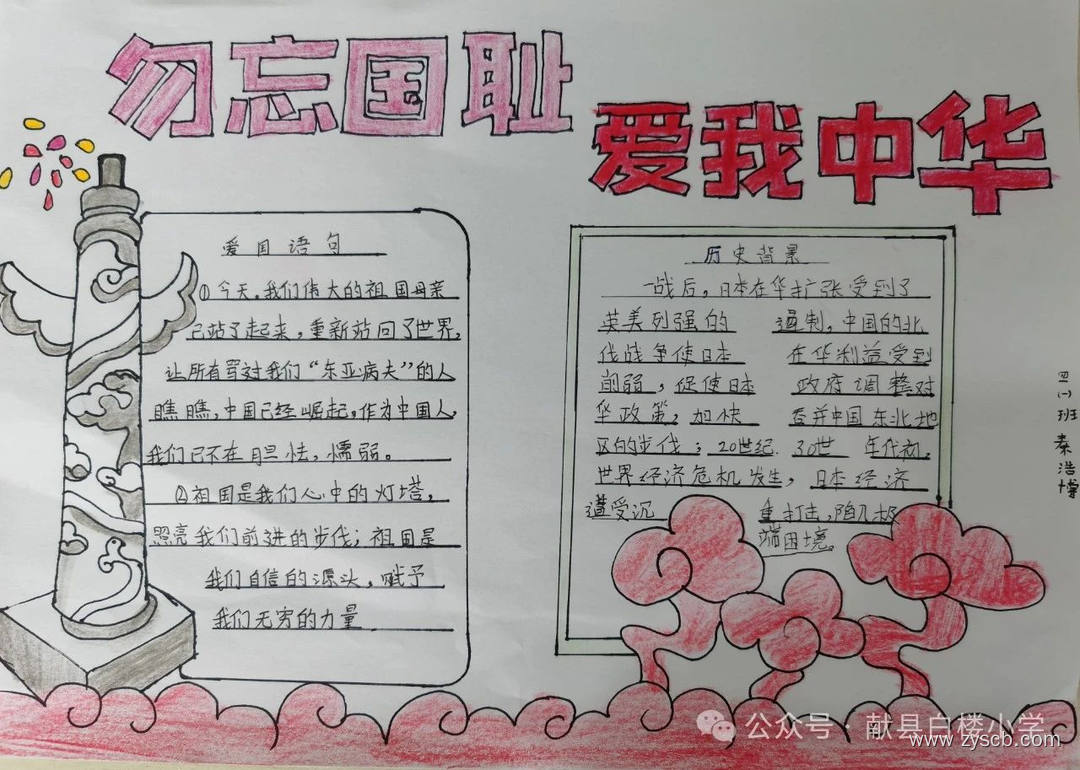 勿忘国耻
爱我中华
爱国语句
①今天,我们伟大的祖国母亲
已站了起来,重新站回了世界,
让所有骂过我们“东亚病夫”的人
瞧瞧,中国已经崛起,作为中国人,
我们已不在胆怯,懦弱。
②祖国是我们心中的灯塔,
照亮我们前进的步伐;祖国是
我们自信的源头,赋予
我们无穷的力量
历史背景
一战后,日本在华扩张受到了
英美列强的 遏制,中国的北
伐战争使日本 在华利益受到
削弱,促使日本 政府调整对
华政策,加快 吞并中国东北地
区的步伐;20世纪 30世 年代初,
世界经济危机发生,日本经济
遭受沉 重打击,陷入极
端困境。
四(一)班 秦浩博
公众号·献县白楼小学
www.zyscb.com